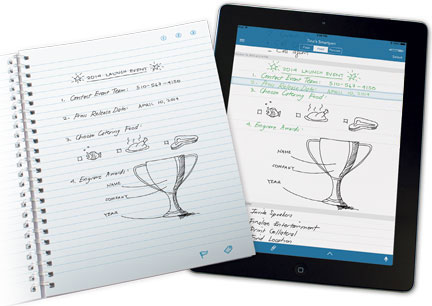 2014 LAUNCH EVENT
1. Contact Event Team: 510-569-9150
2. Press Release Date: APRIL 10, 2014
3. Choose Catering Food:
4. Engrave Awards:
NAME
COMPANY
YEAR
2014 LAUNCH EVENT
1. Contact Event Team: 510-569-9150
2. Press Release Date: APRIL 10, 2014
3. Choose Catering Food:
4. Engrave Awards:
NAME
COMPANY
YEAR
Invite Speakers
Entertainment
Print Collateral
Find Location